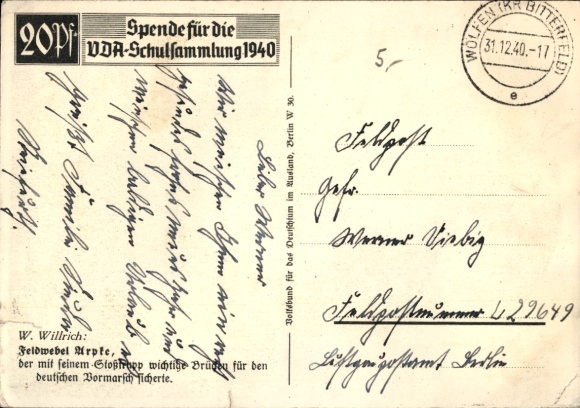 20 Pf.
Spende für die
VDA-Schulsammlung 1940
5,-
WOLFEN (KR BITTERFELD)
31.12.40.-17
e
Lieber Werner
Wir wünschen Ihnen ein recht
gesundes frohes neues Jahr und
Urlaub
Familie
W. Willrich:
Feldwebel Arpke,
der mit seinem Stoßtrupp wichtige Brücken für den
deutschen Vormarsch sicherte.
Volksbund für das Deutschtum im Ausland, Berlin W 30.
Feldpost
Gefr.
Werner Viebig
Feldpostnummer L 29649
Luftgaupostamt Berlin